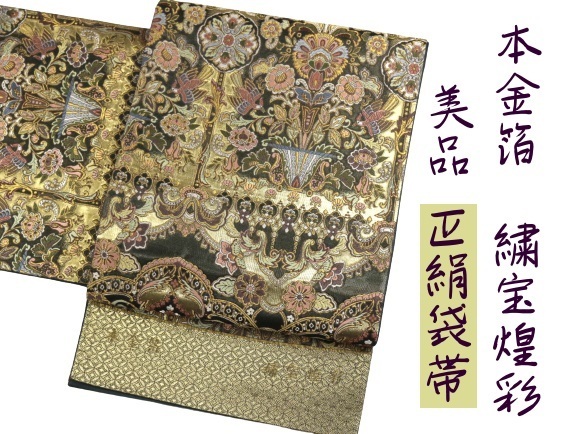 本金箔 繍宝煌彩
美品 正絹袋帯